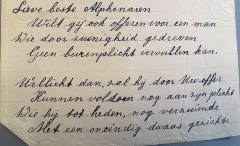 Lieve beste Alphenaren
Wilt gij ook offeren voor een man
Die door zuinigheid gedreven
Geen burenplicht vervullen kan.
Wellicht dan, zal hij door Uw offer
Kunnen voldoen nog aan zyn plicht
Die hij tot heden, nog verzuimde
Met een oneindig dwaas gezicht